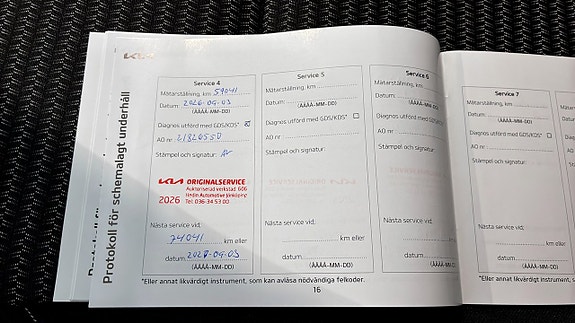 KIA
Protokoll för schemalagt underhåll
Service 4
Mätarställning, km 59041
Datum: 2026-09-03
(ÅÅÅÅ-MM-DD)
Diagnos utförd med GDS/KDS*
AO nr 21326550
Stämpel och signatur:
KIA ORIGINALSERVICE
Auktoriserad verkstad 606
Hedin Automotive Jönköping
2026 Tel. 036-34 53 00
Nästa service vid;
74041 km eller
datum 2027-09-03
(ÅÅÅÅ-MM-DD)
Service 5
Mätarställning, km
Datum:
(ÅÅÅÅ-MM-DD)
Diagnos utförd med GDS/KDS*
AO nr
Stämpel och signatur:
Nästa service vid;
km eller
datum
(ÅÅÅÅ-MM-DD)
Service 6
Mätarställning, km
Datum:
(ÅÅÅÅ-MM-DD)
Diagnos utförd med GDS/KDS*
AO nr
Stämpel och signatur:
Nästa service vid;
km eller
datum
(ÅÅÅÅ-MM-DD)
*Eller annat likvärdigt instrument, som kan avläsa nödvändiga felkoder.
16
Service 7
Mätarställning, km
Datum:
(ÅÅÅÅ-MM-DD)
Diagnos utförd med GDS/KDS*
AO nr
Stämpel och signatur:
Nästa service vid;
km eller
datum
(ÅÅÅÅ-MM-DD)